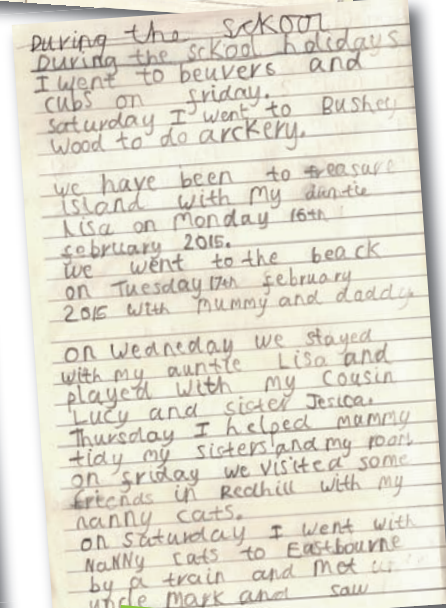 During the sckool
During the sckool holidays
I went to beuvers and
cubs on friday.
saturday I went to Bushey
Wood to do arckery.
we have been to treasure
island with my auntie
Lisa on Monday 16th
february 2015.
We went to the beack
on Tuesday 17th february
2015 with mummy and daddy.
on wedneday we stayed
with my auntie Lisa and
played with my cousin
Lucy and sister Jesica.
Thursday I helped mammy
tidy my sisters and my room
on friday we visited some
friends in Redhill with my
nanny cats.
on saturday I went with
NaNNy cats to Eastbourne
by a train and met
uncle mark and saw